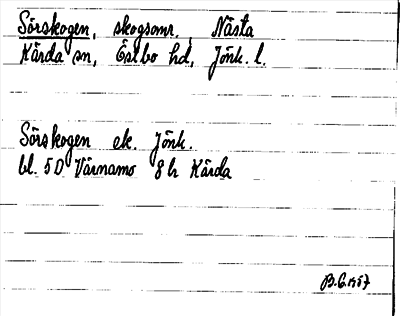 Sörskogen, skogsomr., Nästa
Kärda sn, Östbo hd, Jönk. l.
Sörskogen ek. Jönk.
bl. 5D Värnamo 8h Kärda